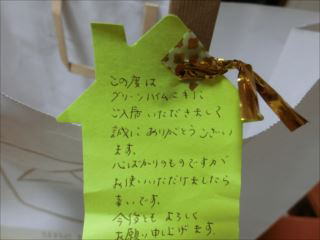 この度は
グリーンハイムニキに
ご入居いただきまして
誠にありがとうござい
ます。
心ばかりのものですが
お使いいただけましたら
幸いです。
今後とも よろしく
お願い申し上げます。